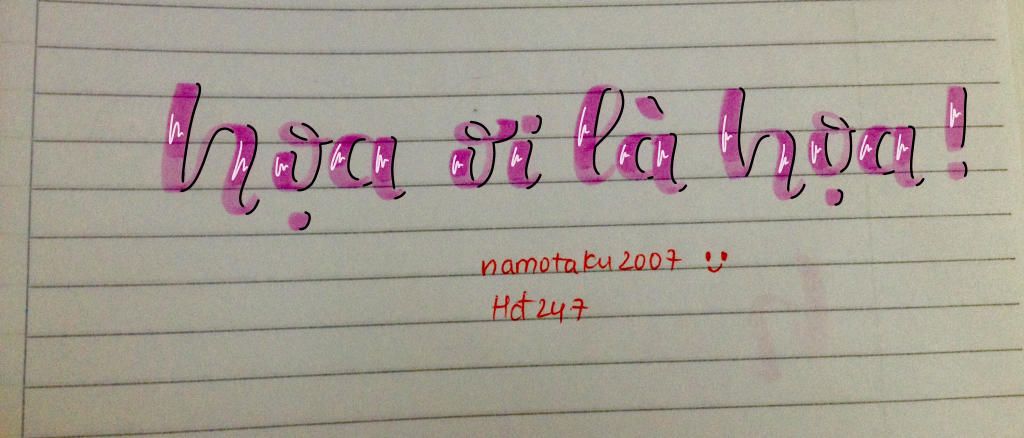 hợa ơi là hợa!
namotaku2007 :)
Hđ247